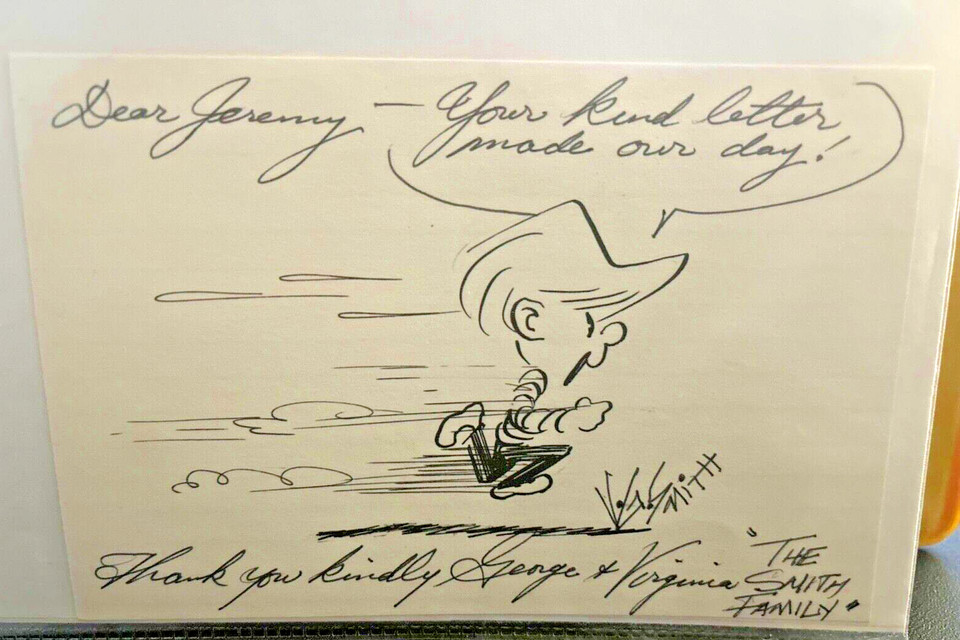 Dear Jeremy — Your kind letter
made our day!
V.&G. SMITH
Thank you kindly George & Virginia "THE
SMITH
FAMILY"